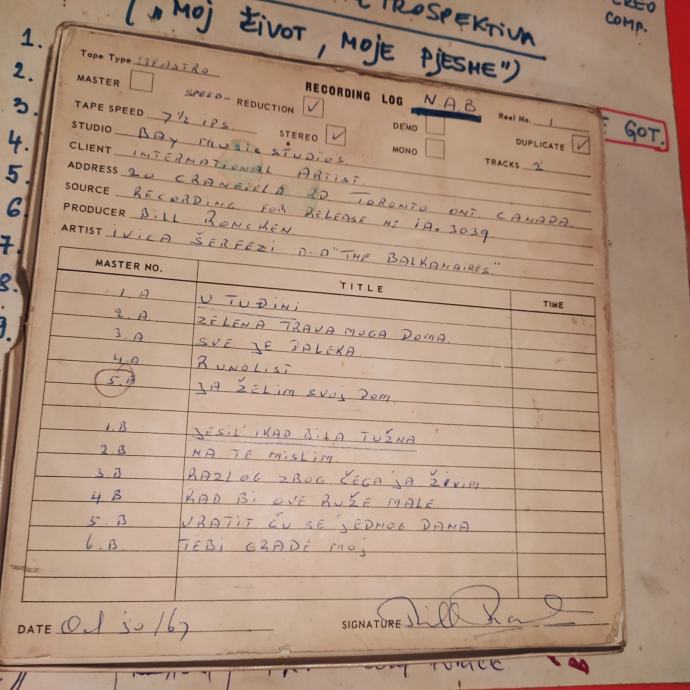 TROSPEKTIVA
("MOJ ŽIVOT, MOJE PJESME")
COMP.
1.
2.
3.
4.
5.
6
7.
8.
9.
GOT.
Tape Type MAESTRO
MASTER
SPEED- REDUCTION ✓
RECORDING LOG N.A.B
Reel No. 1
TAPE SPEED 7½ iPS
STEREO ✓
DEMO
DUPLICATE ✓
STUDIO BAY MUSIC STUDIOS
MONO
TRACKS 2
CLIENT INTERNATIONAL ARTIST
ADDRESS 20 CRANFIELD RD TORONTO ONT. CANADA.
SOURCE RECORDING FOR RELEASE N: iA. 3039
PRODUCER BILL
ARTIST IVICA ŠERFEZI "THE BALKANAIRES"
MASTER NO. TITLE TIME
1. A U TUĐINI
2. A ZELENA TRAVA MOGA DOMA.
3. A SVE JE DALEKA.
4. A RUNOLIST
5. A JA ŽELIM SVOJ DOM.
1. B JESIL' IKAD BILA TUŽNA
2 B NA TE MISLIM.
3 B RAZLOG ZBOG ČEGA JA ŽIVIM
4 B KAD BI OVE RUŽE MALE
5. B VRATIT ĆU SE JEDNOG DANA
6. B TEBI GRADE MOJ
DATE Oct 30/67 SIGNATURE